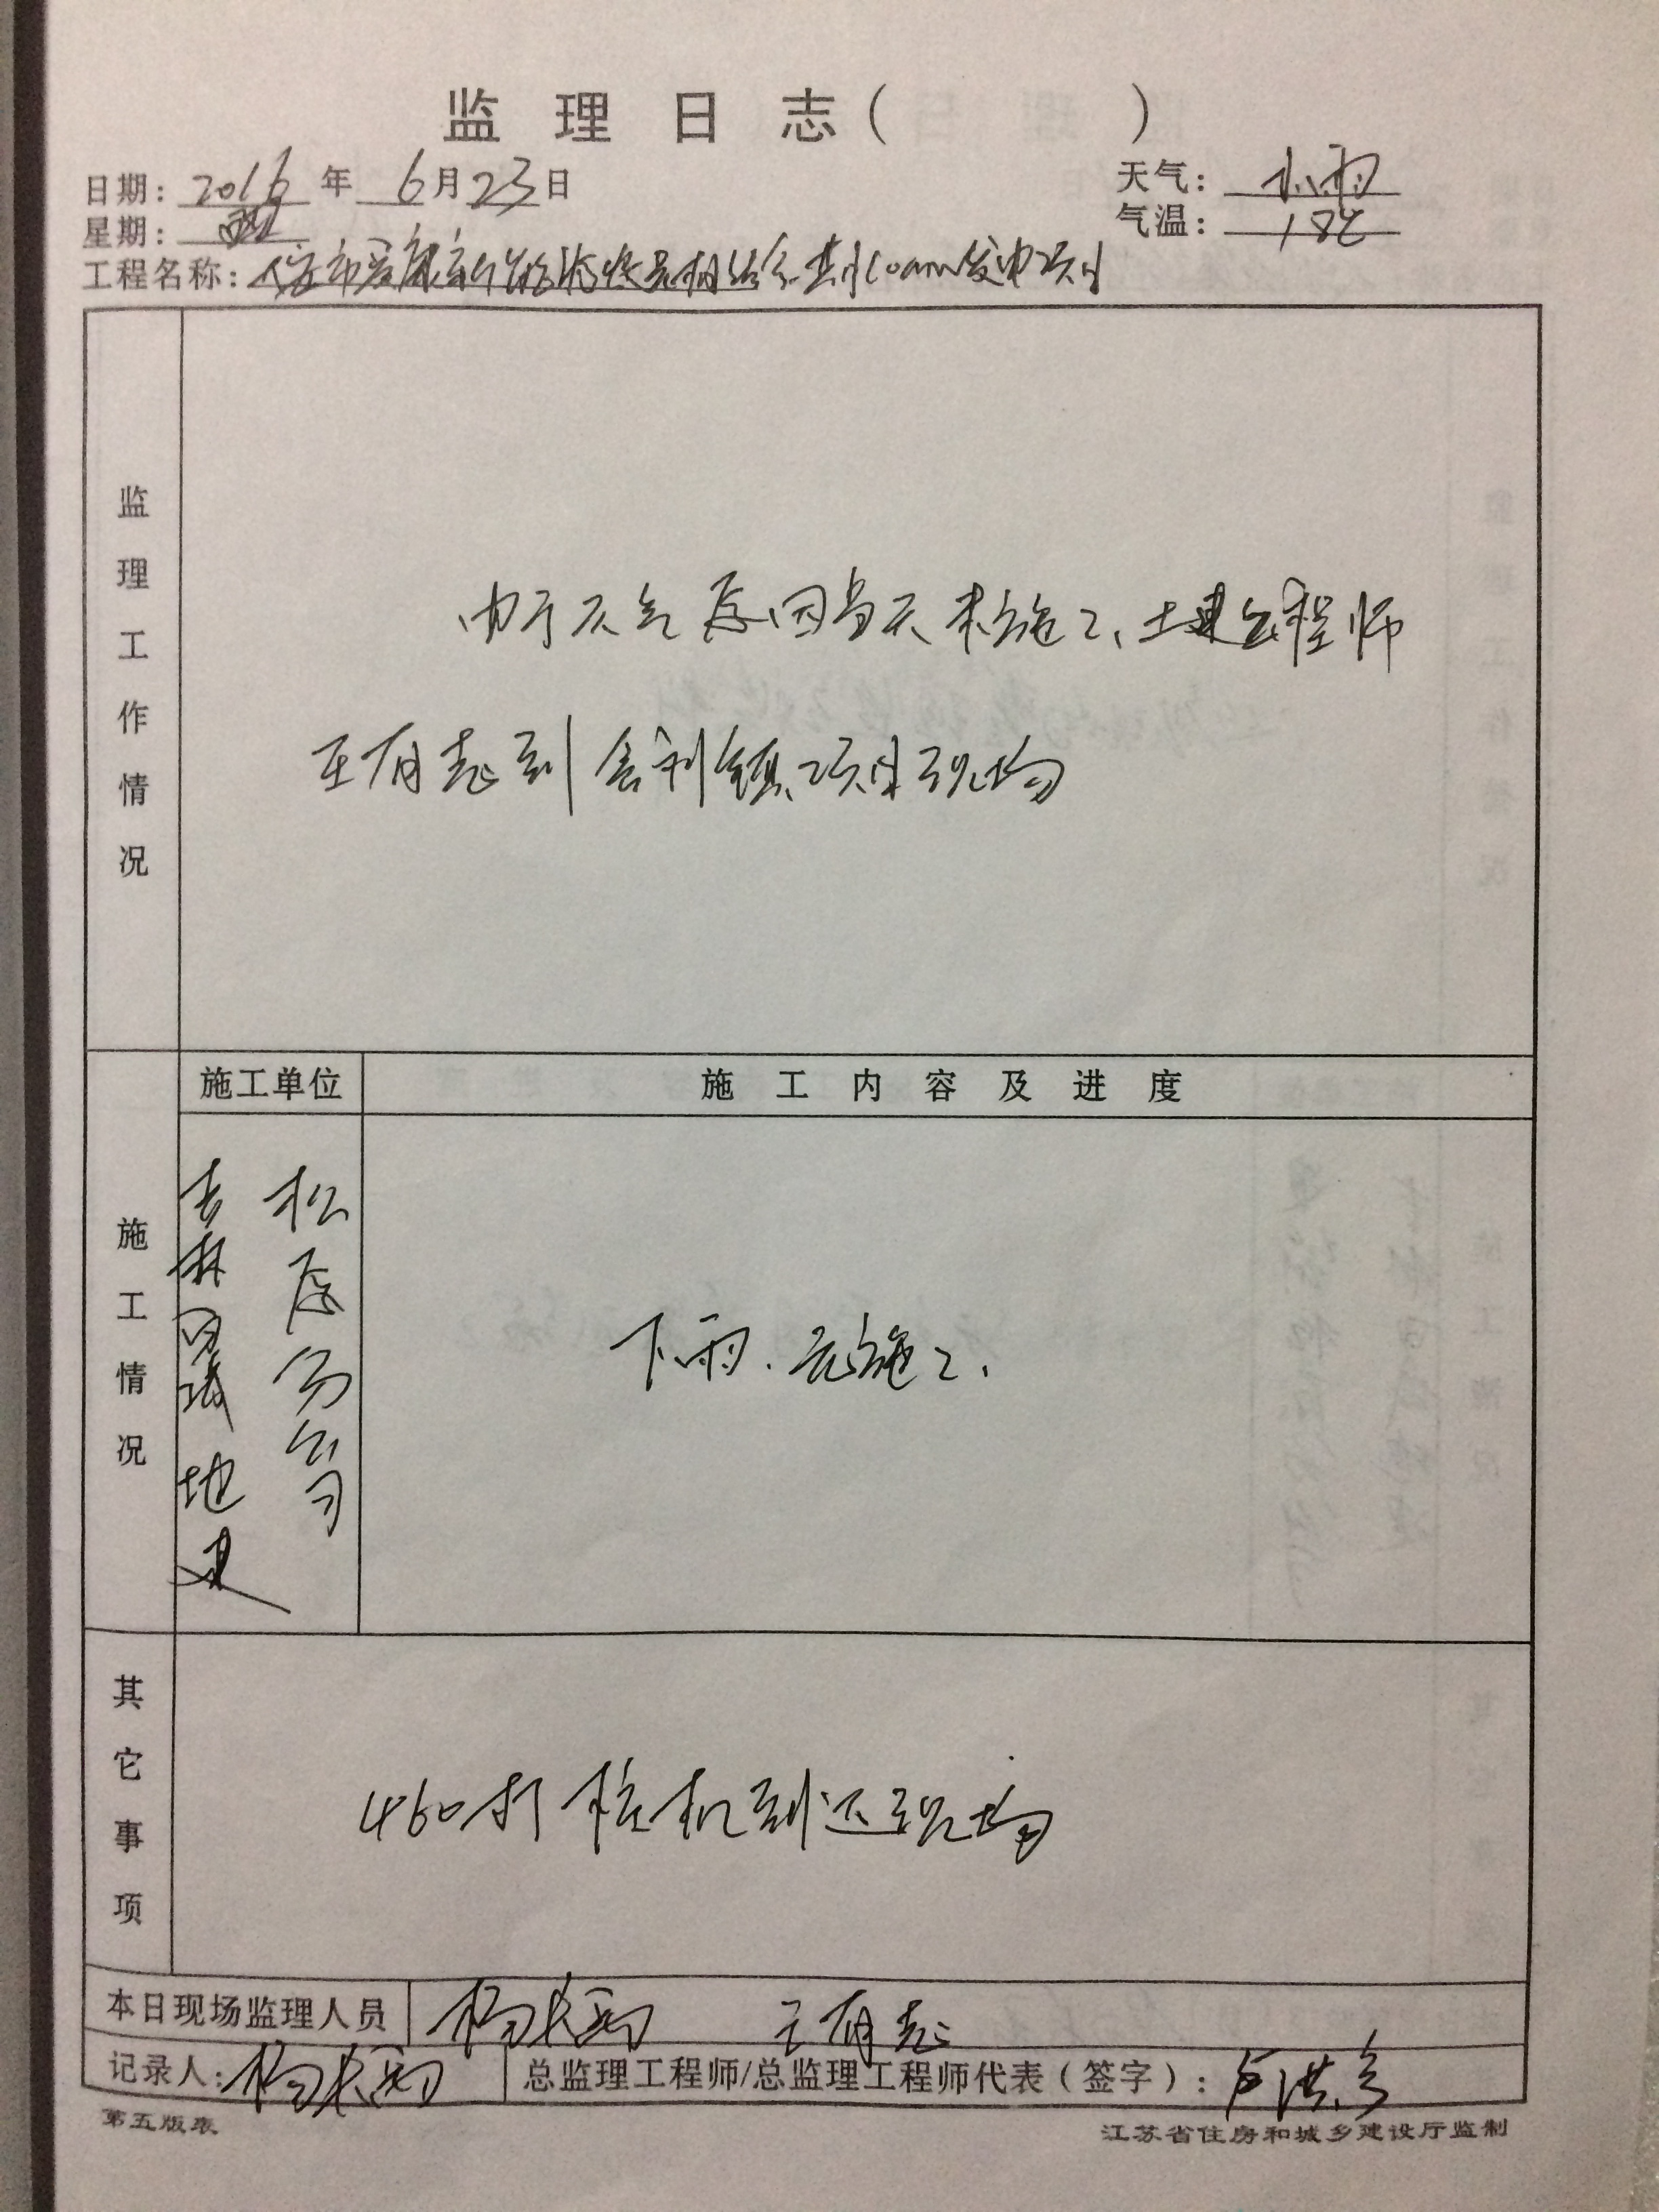 监理日志( )
日期: 2016 年 6月23日
天气: 小雨
星期: 四
气温: 18℃
工程名称: 大安市爱康新能源 发电项目
监理工作情况
由于天气原因当天未施工、土建工程师
王有志到舍利镇项目现场
施工单位
施工内容及进度
施工情况
吉林 地建
松原分公司
下雨.无施工、
其它事项
460打桩机到达现场
本日现场监理人员
杨 王有志
记录人: 杨
总监理工程师/总监理工程师代表(签字): 卢洪
第五版表
江苏省住房和城乡建设厅监制